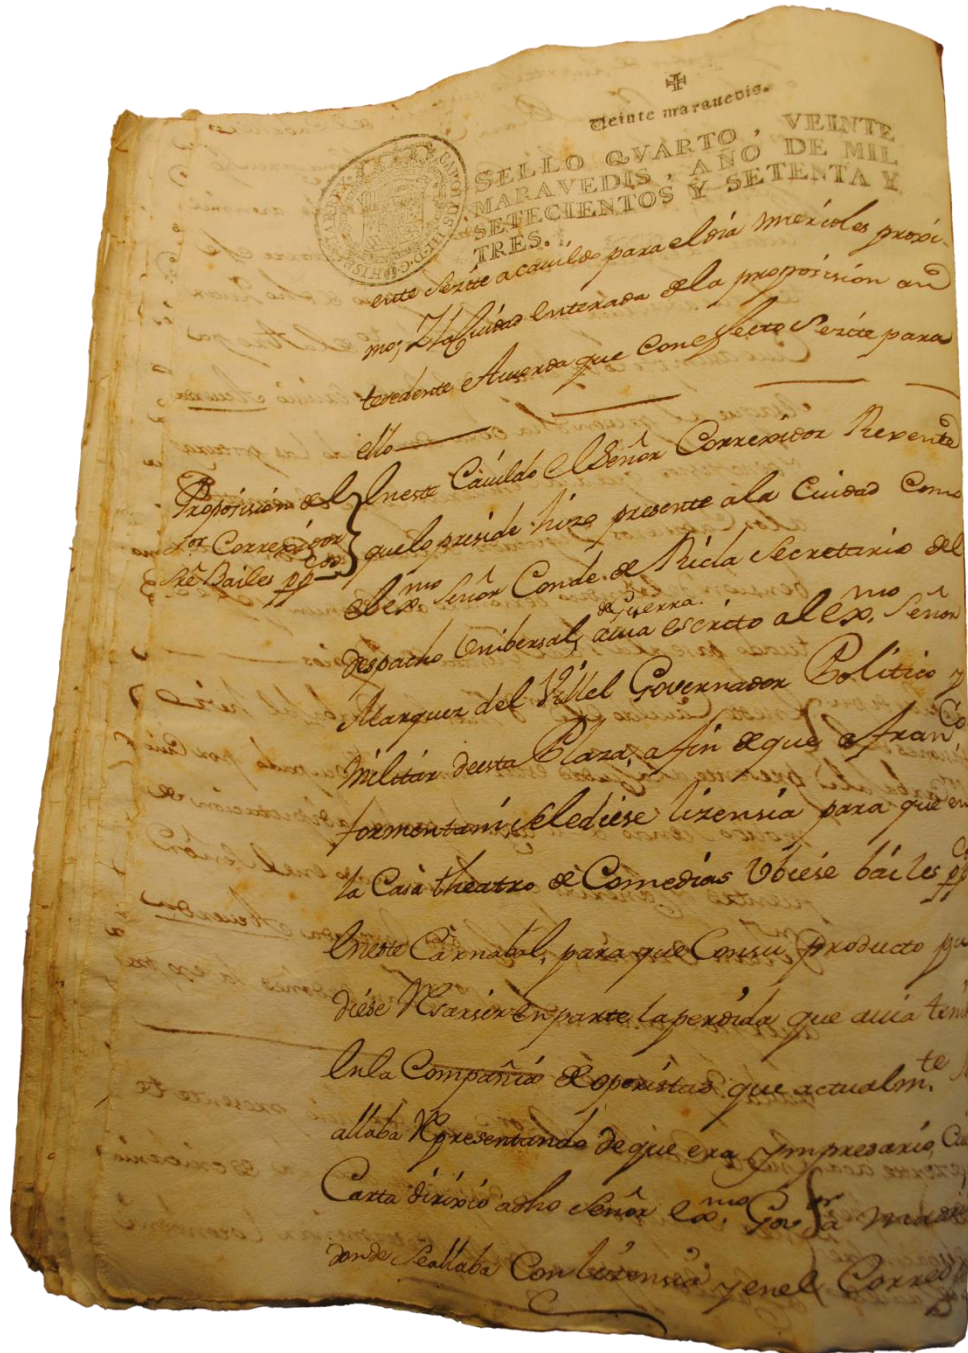 ✠
Veinte marauedis.
SELLO QVARTO, VEINTE
MARAVEDIS, AÑO DE MIL
SETECIENTOS Y SETENTA Y
TRES.
CAROLUS III D G HISPANIAR REX
ente se zite a cauildo para el dia Miercoles proxi-
mo; Y la Ciudad enterada de la proposision an
tezedente Acuerda que con efecto se zite para
ello
Proposision del
sor Correxidor
sre Bailes pp.cos
En este Cauildo el Señor Correxidor Rexente
que lo preside hizo presente a la Ciudad como
el ex.mo Señor Conde de Ricla Secretario del
despacho Unibersal de Guerra auia escrito al ex.mo Señor
Marquez del Villel Governador Politico y
Militar de esta Plaza, a fin de que a Fran.co
tormentani, se le diese lizensia para que en
la Casa theatro de Comedias Ubiese bailes pp
en este Carnabal, para que con su producto pu
diese Resarsir en parte la perdida que auia teni
en la Compañia de operistas que actualm.te
allaba Representando de que era Ympresario,
Carta dirixio a dho Señor ex.mo Gov.or a Madri
donde se allaba Con lizensia, y en el Correo